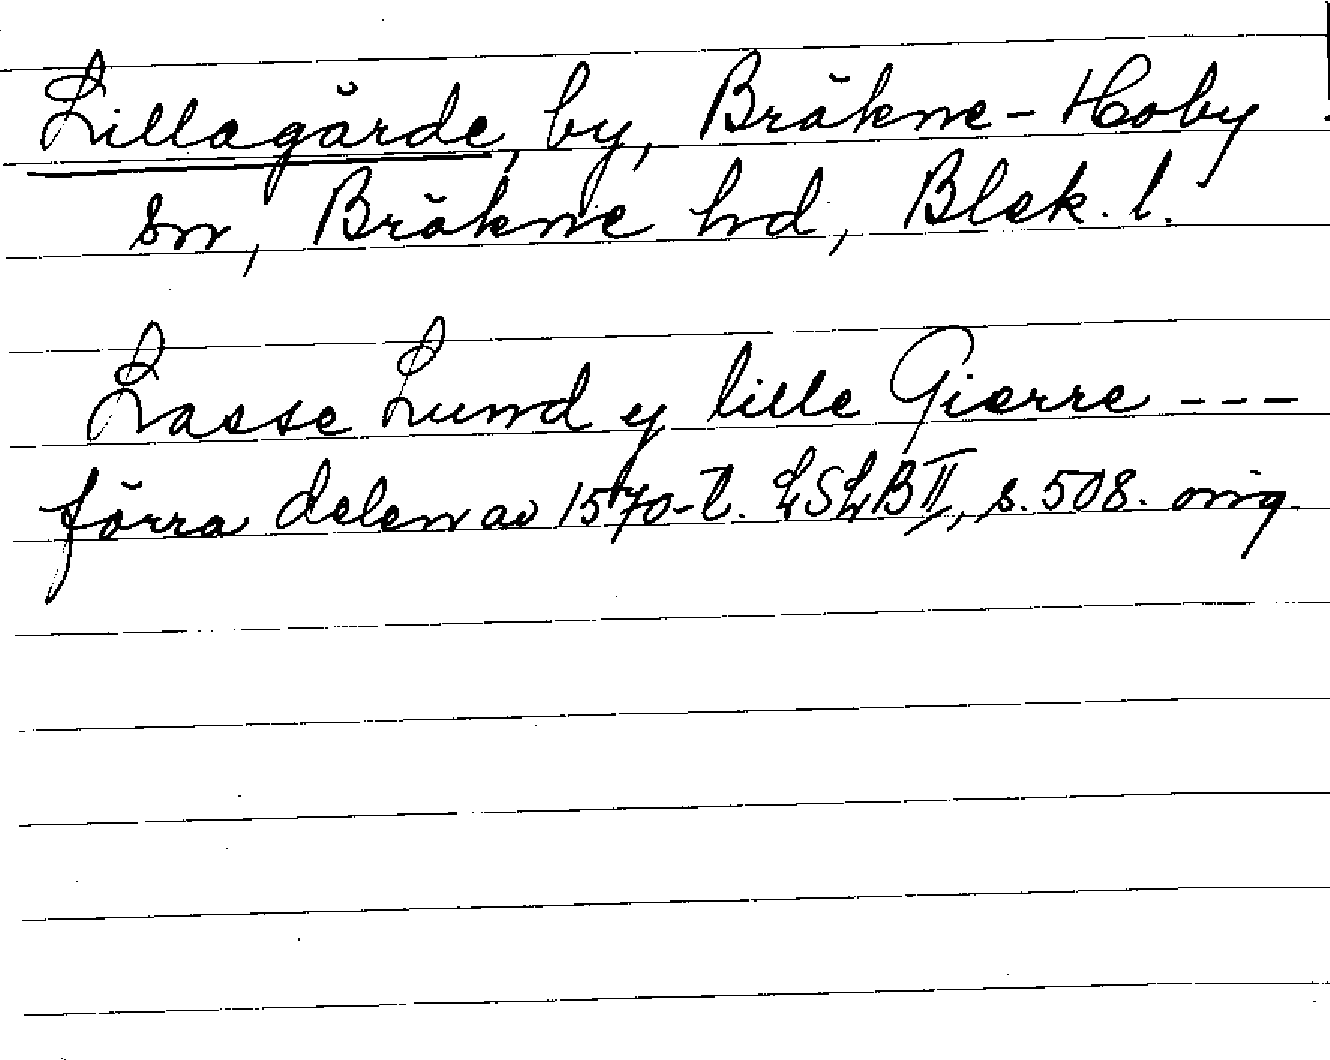 Lillagärde, by, Bräkne-Hoby
sn, Bräkne hd, Blek. l.
Lasse Lund y lille Gierre ---
förra delen av 1570-t. LSLB II, s. 508. orig.